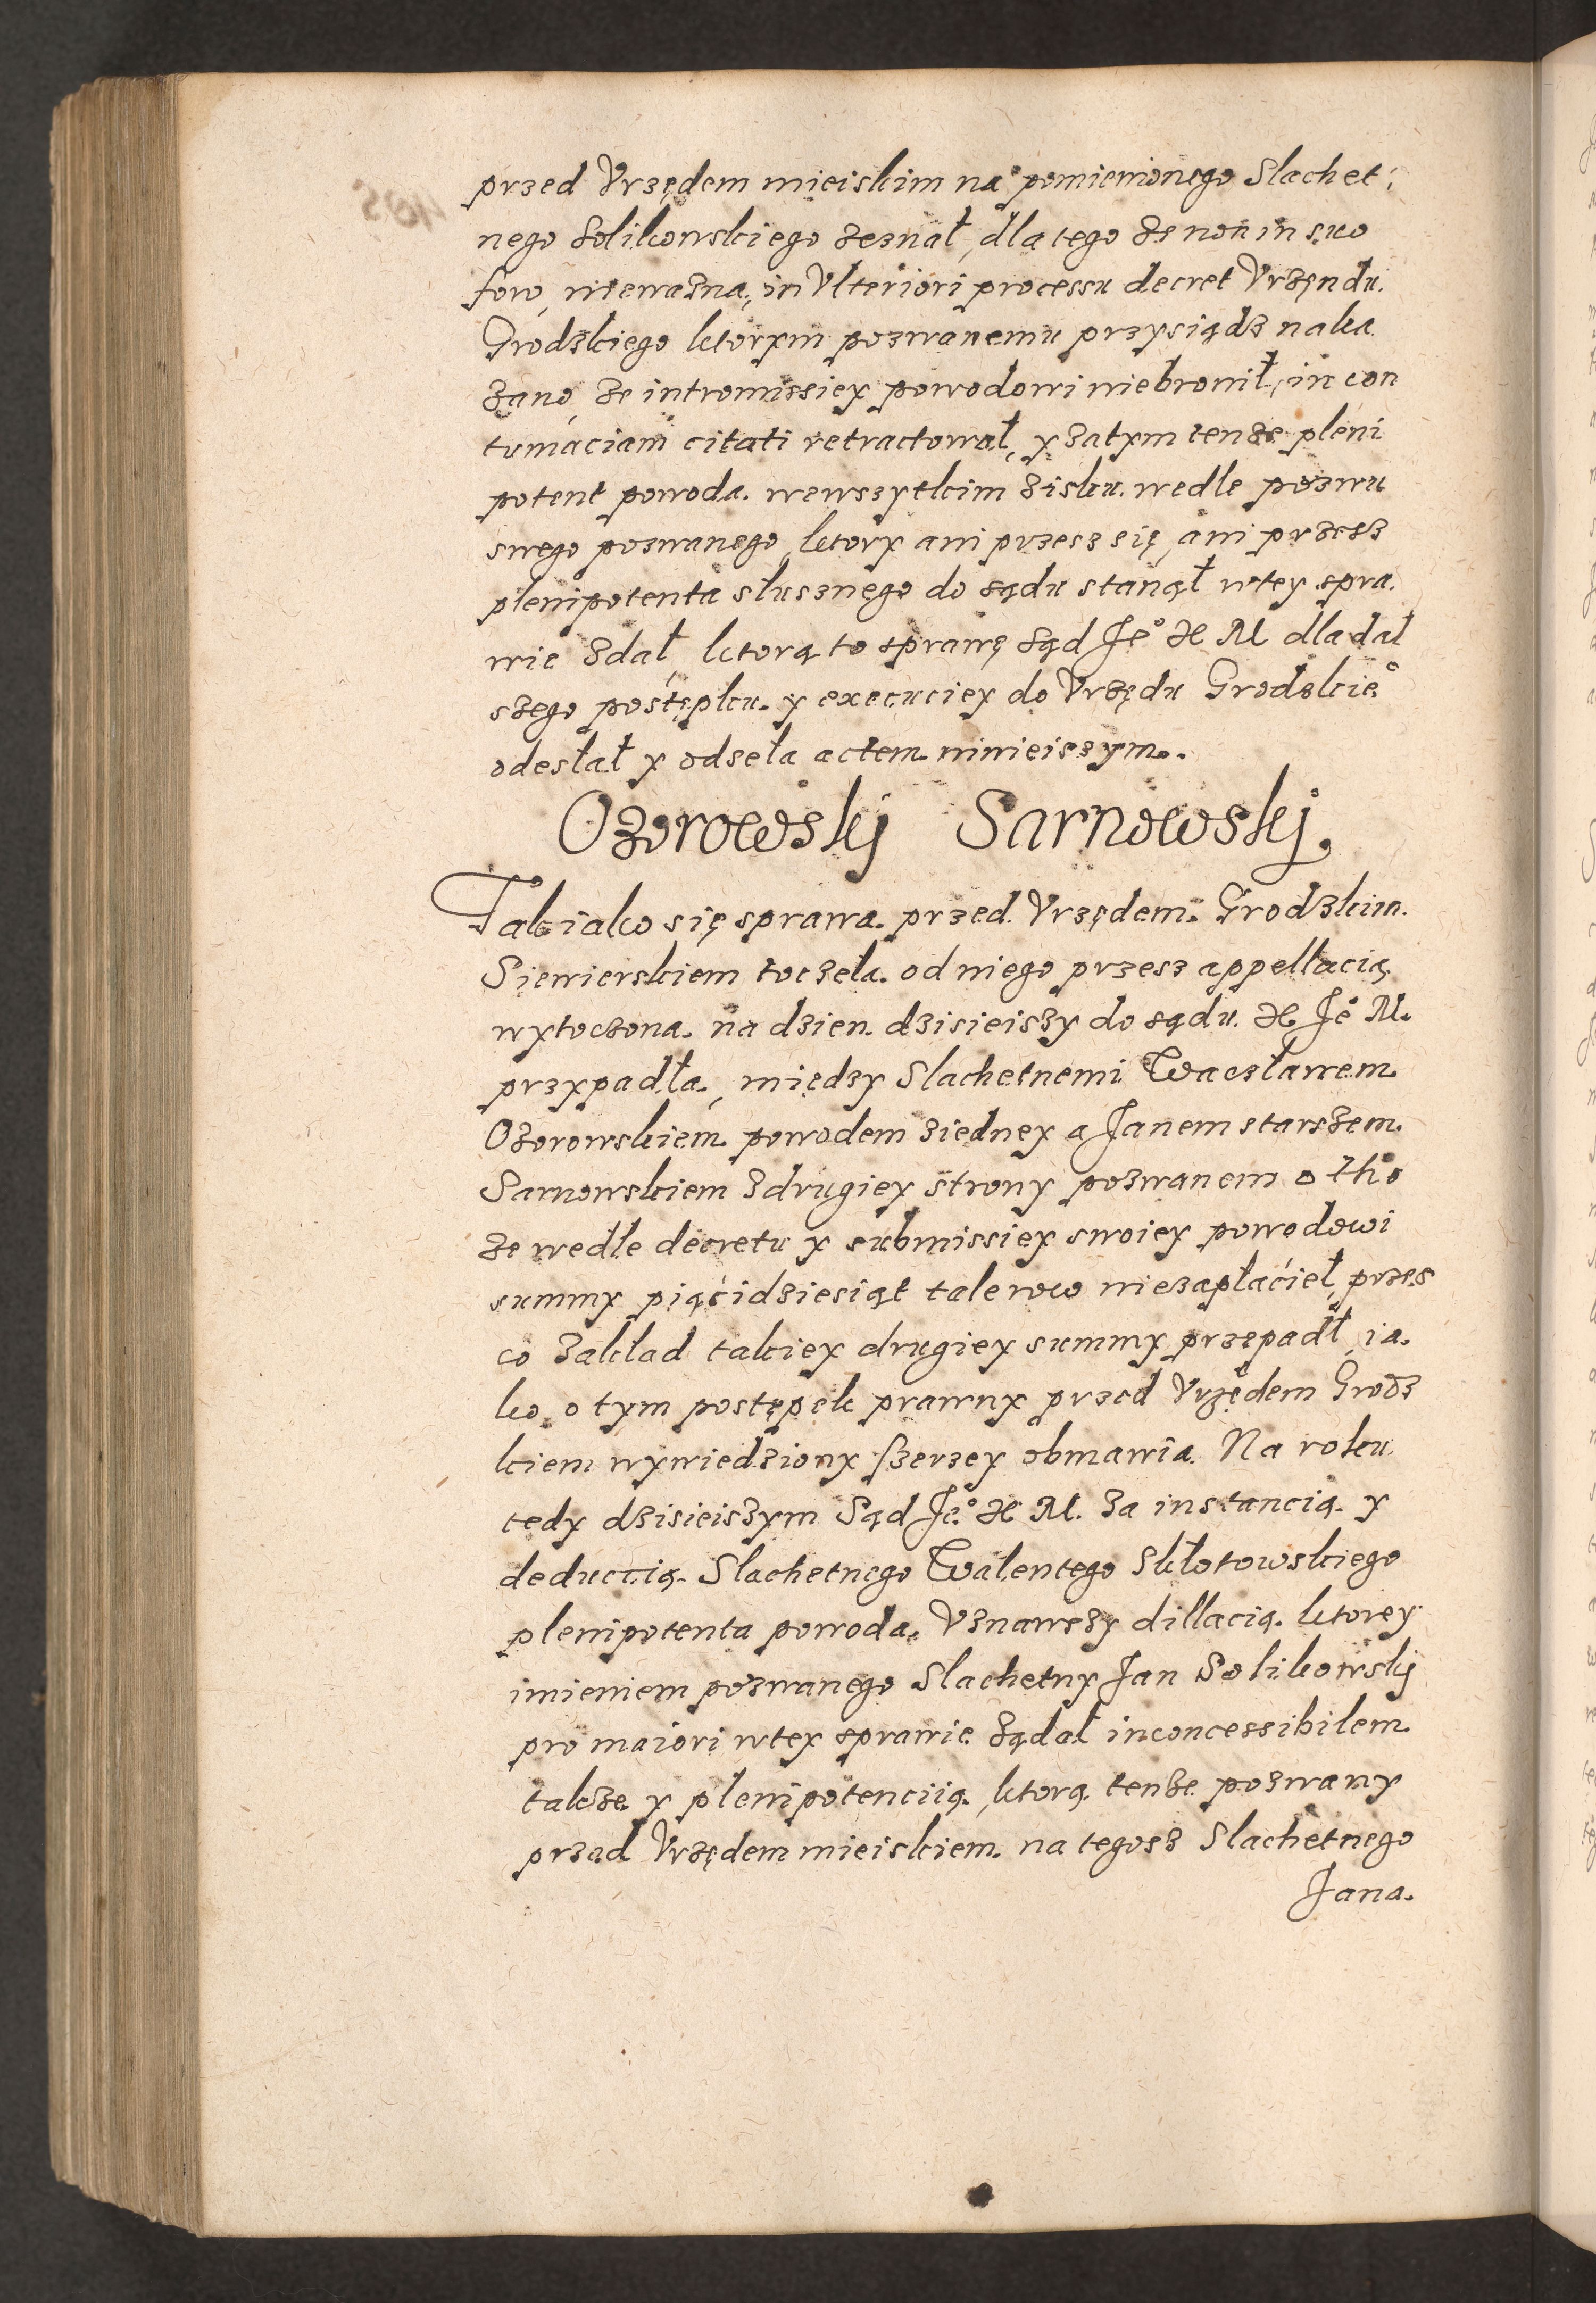 przed Vrzędem mieiskim na pomienionego Slachet:
nego Solikowskiego zeznał, dla tego ze non in suo
foro, nieważna, in Vlteriori processu decret Vrzęndu
Grodzkiego ktorym pozwanemu przysiądz naka
zano, ze intromissiey powodowi niebronił, in con
tumaciam citati retractował, y zatym tenze pleni
potent powoda wewszytkim zisku wedle pozwu
swego pozwanego, ktory ani przesz się, ani przesz
plenipotenta słusznego do sądu stanął wtey spra
wie zdał, ktorą to sprawę sąd Je° X M dla dal
szego postępku y execuciey do Vrzędu Grodzkie°
odesłał y odseła actem ninieiszym.
Ozorowskij Sarnowskij.
Tak iako się sprawa przed Vrzędem Grodzkim
Siewierskiem toczeła od niego przesz appellacią
wytoczona na dzien dzisieiszy do sądu X Je° M.
przypadła, między Slachetnemi Wacsławem
Ozorowskiem powodem ziedney a Janem starszem
Sarnowskiem zdrugiey strony pozwanem o tho
ze wedle decretu y submissiey swoiey powodowi
summy piąćidziesiąt talerow niezapłacieł, przes
co zakład takiey drugiey summy przepadł, ia
ko o tym postępek prawny przed Vrzędem Grodz
kiem wywiedziony szerzey obmawia. Na roku
tedy dzisieiszym Sąd Je° X M. za instancią y
deduccią Slachetnego Walentego Skłotowskiego
plenipotenta powoda, Vznawszy dillacią ktorey
imieniem pozwanego Slachetny Jan Solikowskij
pro maiori wtey sprawie ządał inconcessibilem
takze y plenipotenciią, ktorą tenze pozwany
przed Vrzędem mieiskiem na tegosz Slachetnego
Jana.